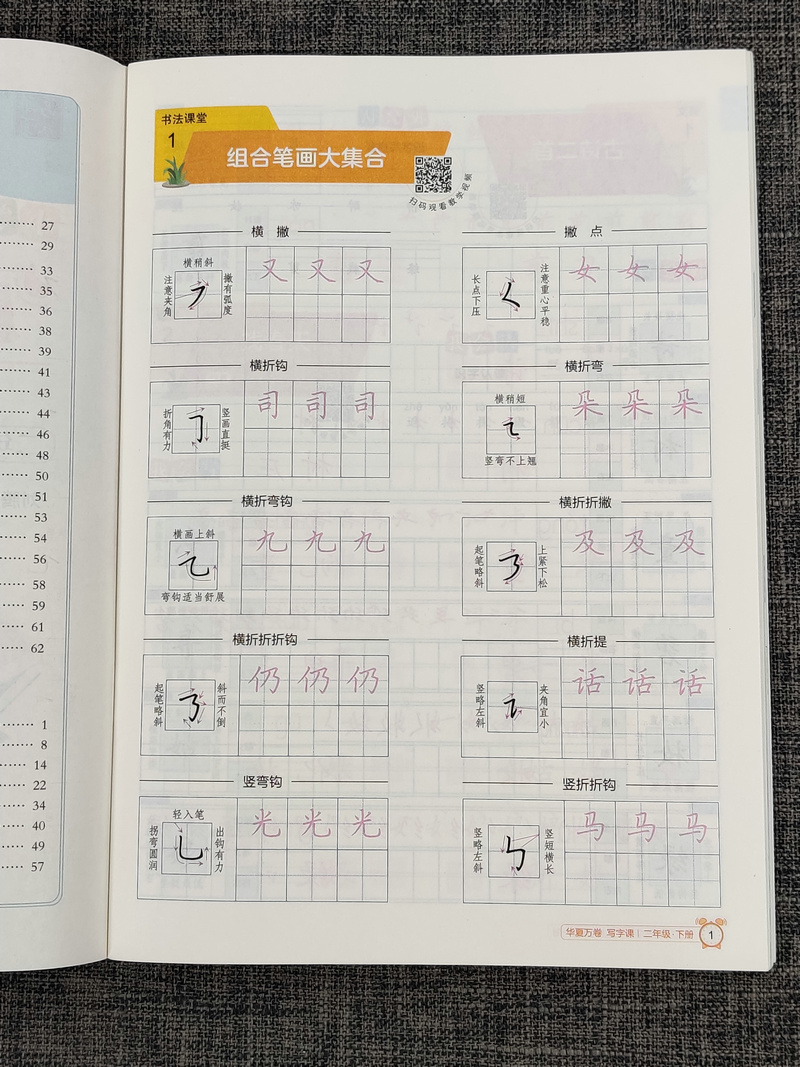 27
29
33
35
36
38
39
41
43
44
46
48
50
51
53
54
56
58
59
61
62
1
8
14
22
34
40
49
57
书法课堂
1
组合笔画大集合
扫码观看教学视频
横 撇
横稍斜
注意夹角
撇有弧度
又 又 又
撇 点
长点下压
注意重心平稳
女 女 女
横折钩
折角有力
竖画直挺
司 司 司
横折弯
横稍短
竖弯不上翘
朵 朵 朵
横折弯钩
横画上斜
弯钩适当舒展
九 九 九
横折折撇
起笔略斜
上紧下松
及 及 及
横折折折钩
起笔略斜
斜而不倒
仍 仍 仍
横折提
竖略左斜
夹角宜小
话 话 话
竖弯钩
轻入笔
拐弯圆润
出钩有力
光 光 光
竖折折钩
竖略左斜
竖短横长
马 马 马
华夏万卷 写字课 | 二年级·下册
1